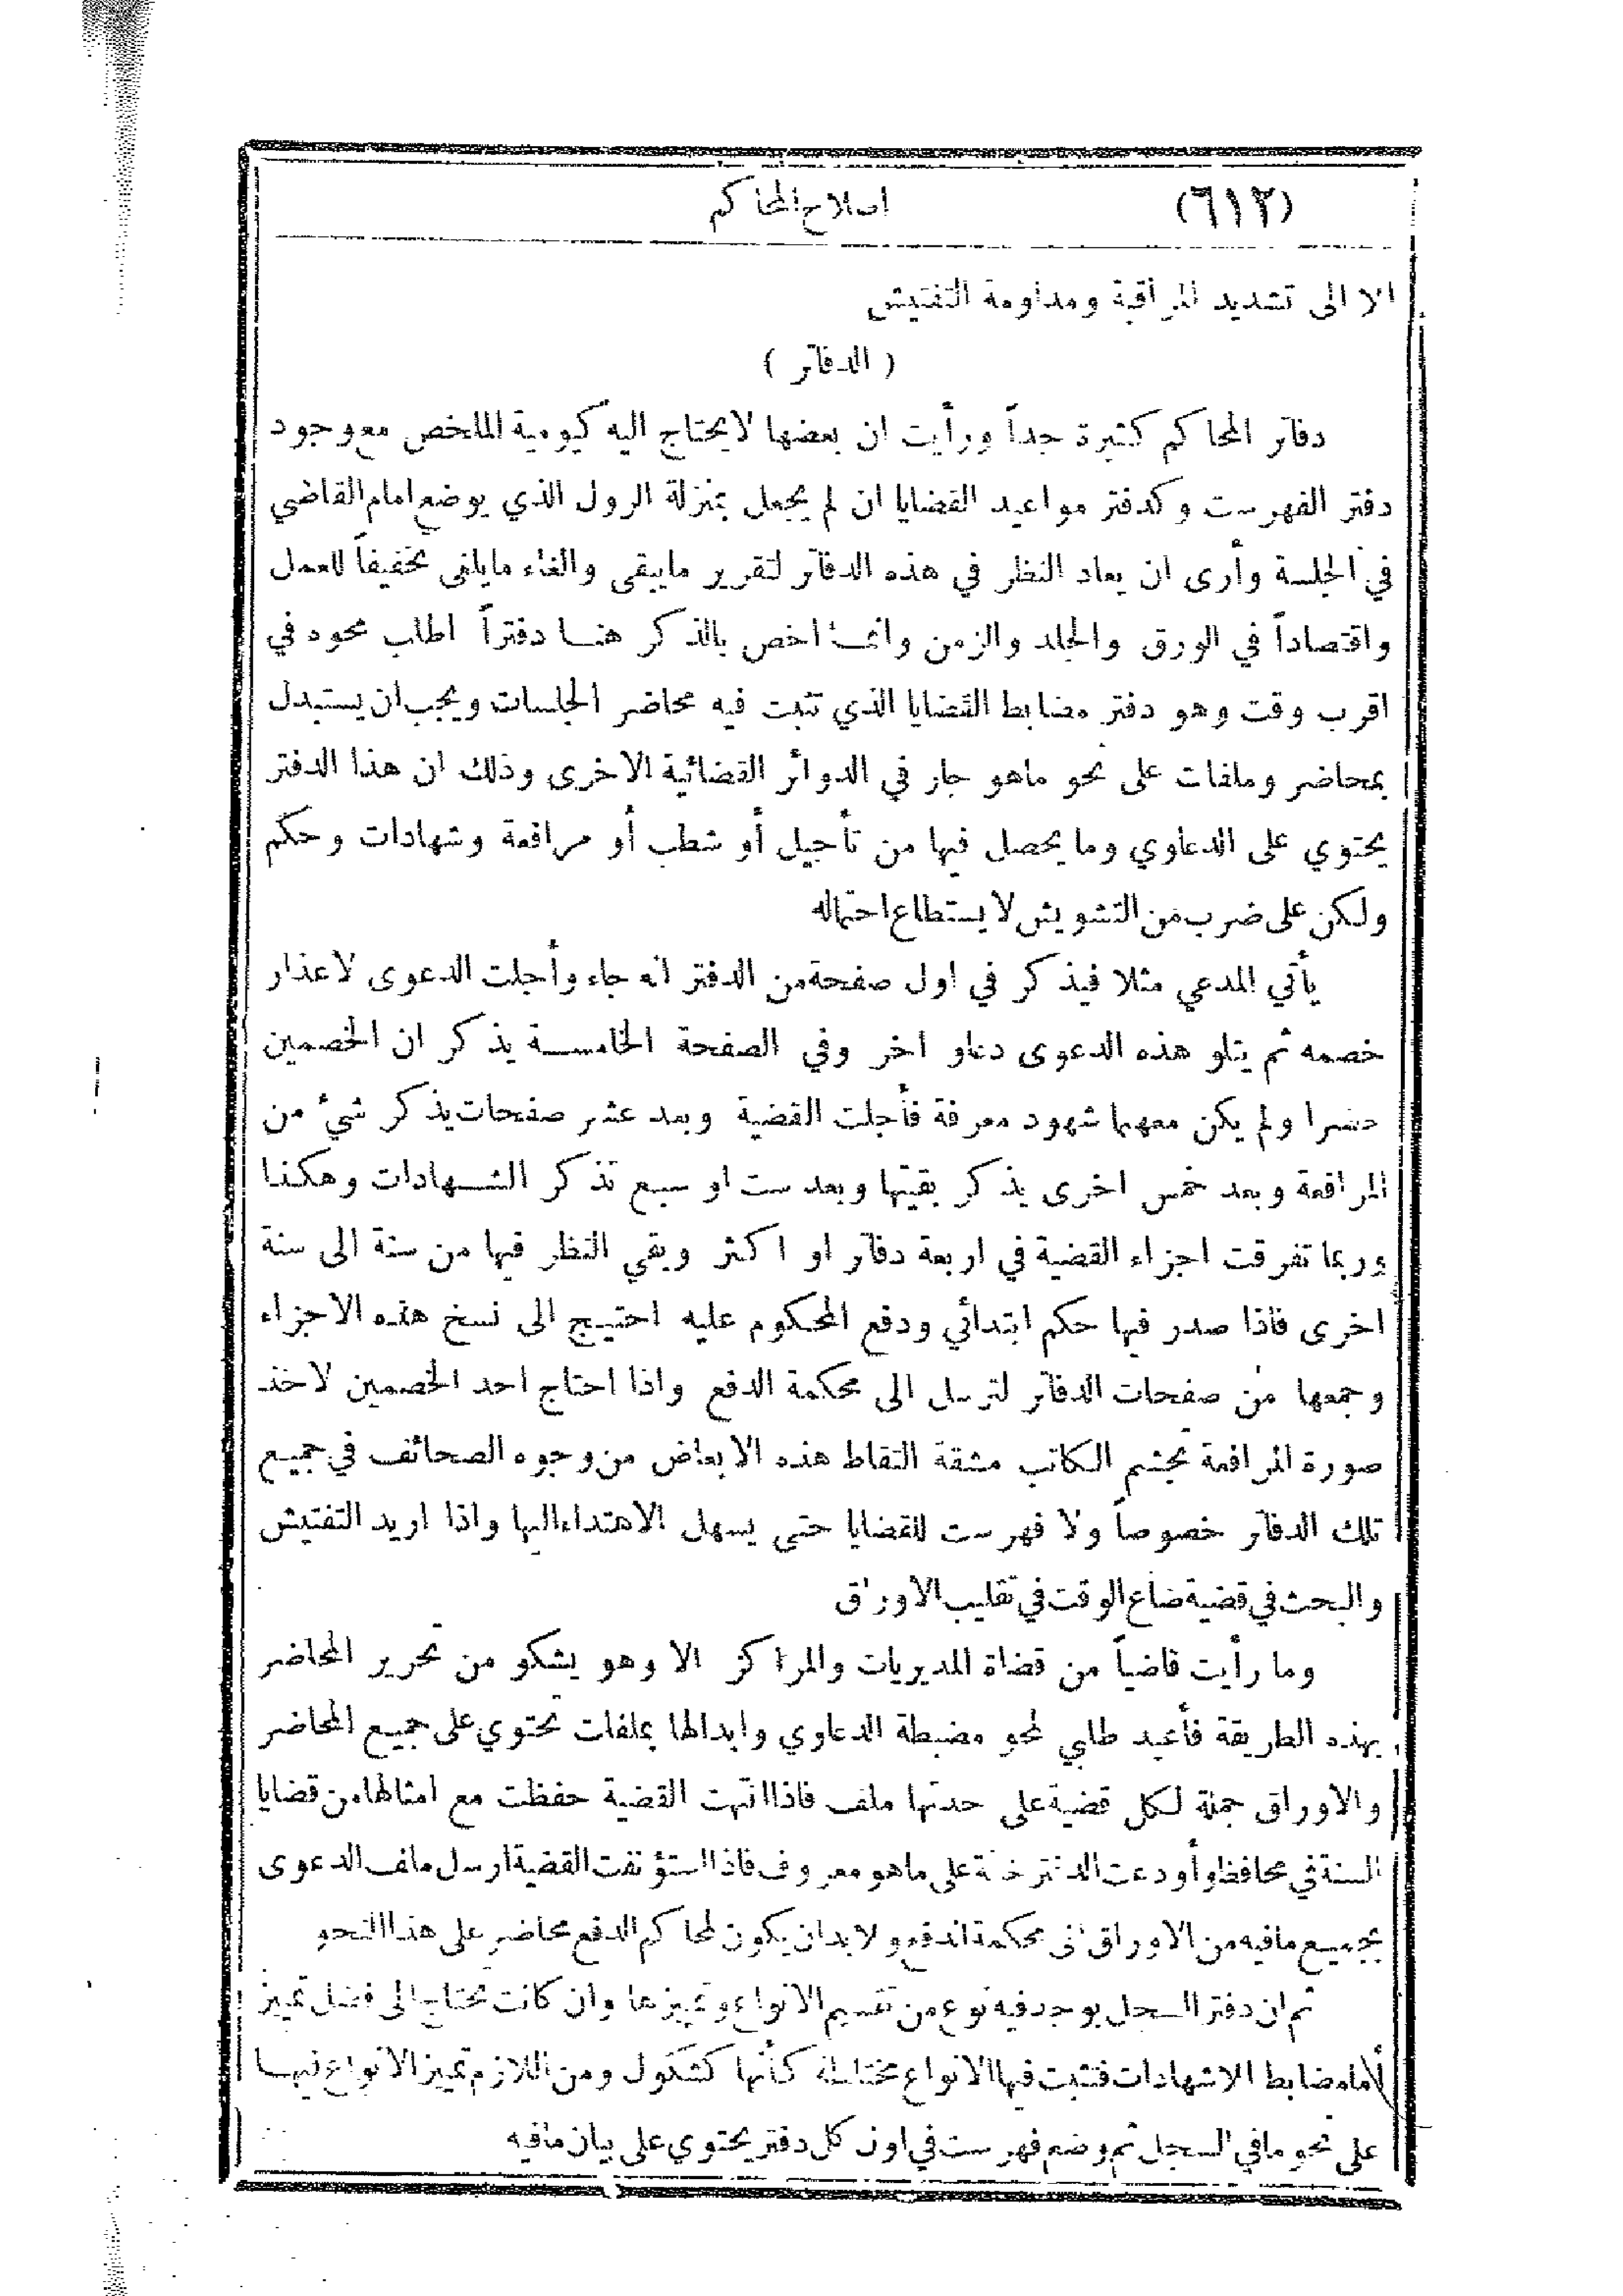 (٦١٢) اصلاح المحاكم
الا الى تشديد المراقبة ومداومة التفتيش
( الدفاتر )
دفاتر المحاكم كثيرة جداً ورأيت ان بعضها لا يحتاج اليه كيومية الملخص مع وجود
دفتر الفهرست وكدفتر مواعيد القضايا ان لم يجعل بمنزلة الرول الذي يوضع امام القاضي
في الجلسة وأرى ان يعاد النظر في هذه الدفاتر لتقرير ما يبقى والغاء ما يلغى تخفيفاً للعمل
واقتصاداً في الورق والجلد والزمن وانما اخص بالذكر هنا دفتراً اطلب محوه في
اقرب وقت وهو دفتر مضابط القضايا الذي تثبت فيه محاضر الجلسات ويجب ان يستبدل
بمحاضر وملفات على نحو ماهو جار في الدوائر القضائية الاخرى وذلك ان هذا الدفتر
يحتوي على الدعاوي وما يحصل فيها من تأجيل أو شطب أو مرافعة وشهادات وحكم
ولكن على ضرب من التشويش لا يستطاع احتماله
يأتي المدعي مثلا فيذكر في اول صفحة من الدفتر انه جاء وأجلت الدعوى لاعذار
خصمه ثم يتلو هذه الدعوى دعاو اخر وفي الصفحة الخامسة يذكر ان الخصمين
حضرا ولم يكن معهما شهود معرفة فأجلت القضية وبعد عشر صفحات يذكر شيء من
المرافعة وبعد خمس اخرى يذكر بقيتها وبعد ست او سبع تذكر الشهادات وهكذا
وربما تفرقت اجزاء القضية في اربعة دفاتر او اكثر وبقي النظر فيها من سنة الى سنة
اخرى فاذا صدر فيها حكم ابتدائي ودفع المحكوم عليه احتيج الى نسخ هذه الاجزاء
وجمعها من صفحات الدفاتر لترسل الى محكمة الدفع واذا احتاج احد الخصمين لاخذ
صورة المرافعة تجشم الكاتب مشقة التقاط هذه الابعاض من وجوه الصحائف في جميع
تلك الدفاتر خصوصاً ولا فهرست للقضايا حتى يسهل الاهتداء اليها واذا اريد التفتيش
والبحث في قضية ضاع الوقت في تقليب الاوراق
وما رأيت قاضياً من قضاة المديريات والمراكز الا وهو يشكو من تحرير المحاضر
بهذه الطريقة فأعيد طلبي لمحو مضبطة الدعاوي وابدالها بملفات تحتوي على جميع المحاضر
والاوراق جملة لكل قضية على حدتها ملف فاذا انتهت القضية حفظت مع امثالها من قضايا
السنة في محافظ وأودعت الدفترخانة على ماهو معروف فاذا استؤنفت القضية ارسل ملف الدعوى
بجميع مافيه من الاوراق الى محكمة الدفع ولا بد ان يكون لمحاكم الدفع محاضر على هذا النحو
ثم ان دفتر السجل يوجد فيه نوع من تقسيم الانواع وتمييزها وان كانت تحتاج الى فضل تمييز
أما مضابط الاشهادات فتثبت فيها الانواع مختلطة كأنها كشكول ومن اللازم تمييز الانواع فيها
على نحو مافي السجل ثم وضع فهرست في اول كل دفتر يحتوي على بيان مافيه